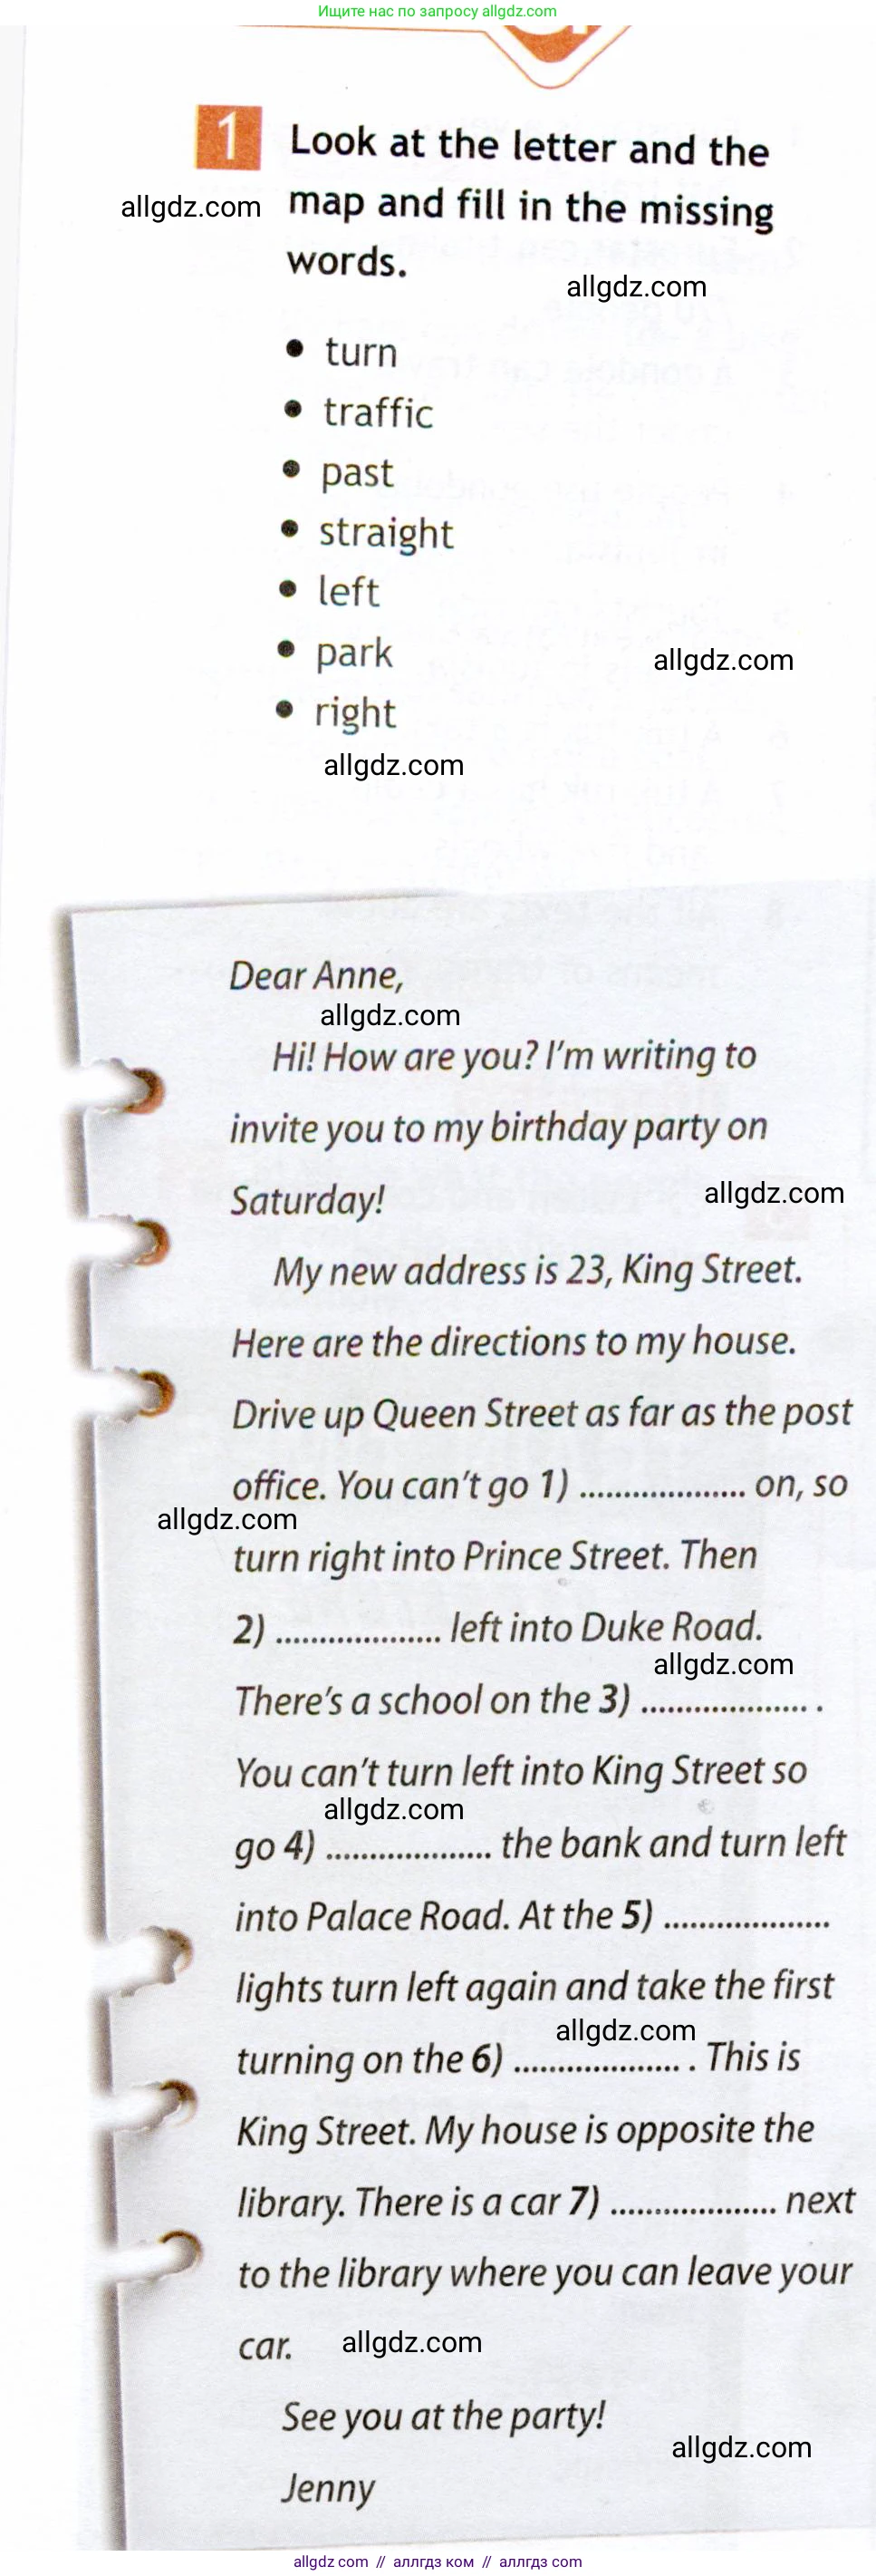 Ищите нас по запросу allgdz.com
1 Look at the letter and the
allgdz.com map and fill in the missing
words.
allgdz.com
• turn
• traffic
• past
• straight
• left
• park
allgdz.com
• right
allgdz.com
Dear Anne,
allgdz.com
Hi! How are you? I'm writing to
invite you to my birthday party on
Saturday!
allgdz.com
My new address is 23, King Street.
Here are the directions to my house.
Drive up Queen Street as far as the post
office. You can't go 1) ................... on, so
allgdz.com
turn right into Prince Street. Then
2) ................... left into Duke Road.
allgdz.com
There's a school on the 3) ................... .
You can't turn left into King Street so
allgdz.com
go 4) ................... the bank and turn left
into Palace Road. At the 5) ...................
lights turn left again and take the first
allgdz.com
turning on the 6) ................... . This is
King Street. My house is opposite the
library. There is a car 7) ................... next
to the library where you can leave your
car.
allgdz.com
See you at the party!
allgdz.com
Jenny
allgdz com // аллгдз ком // аллгдз com